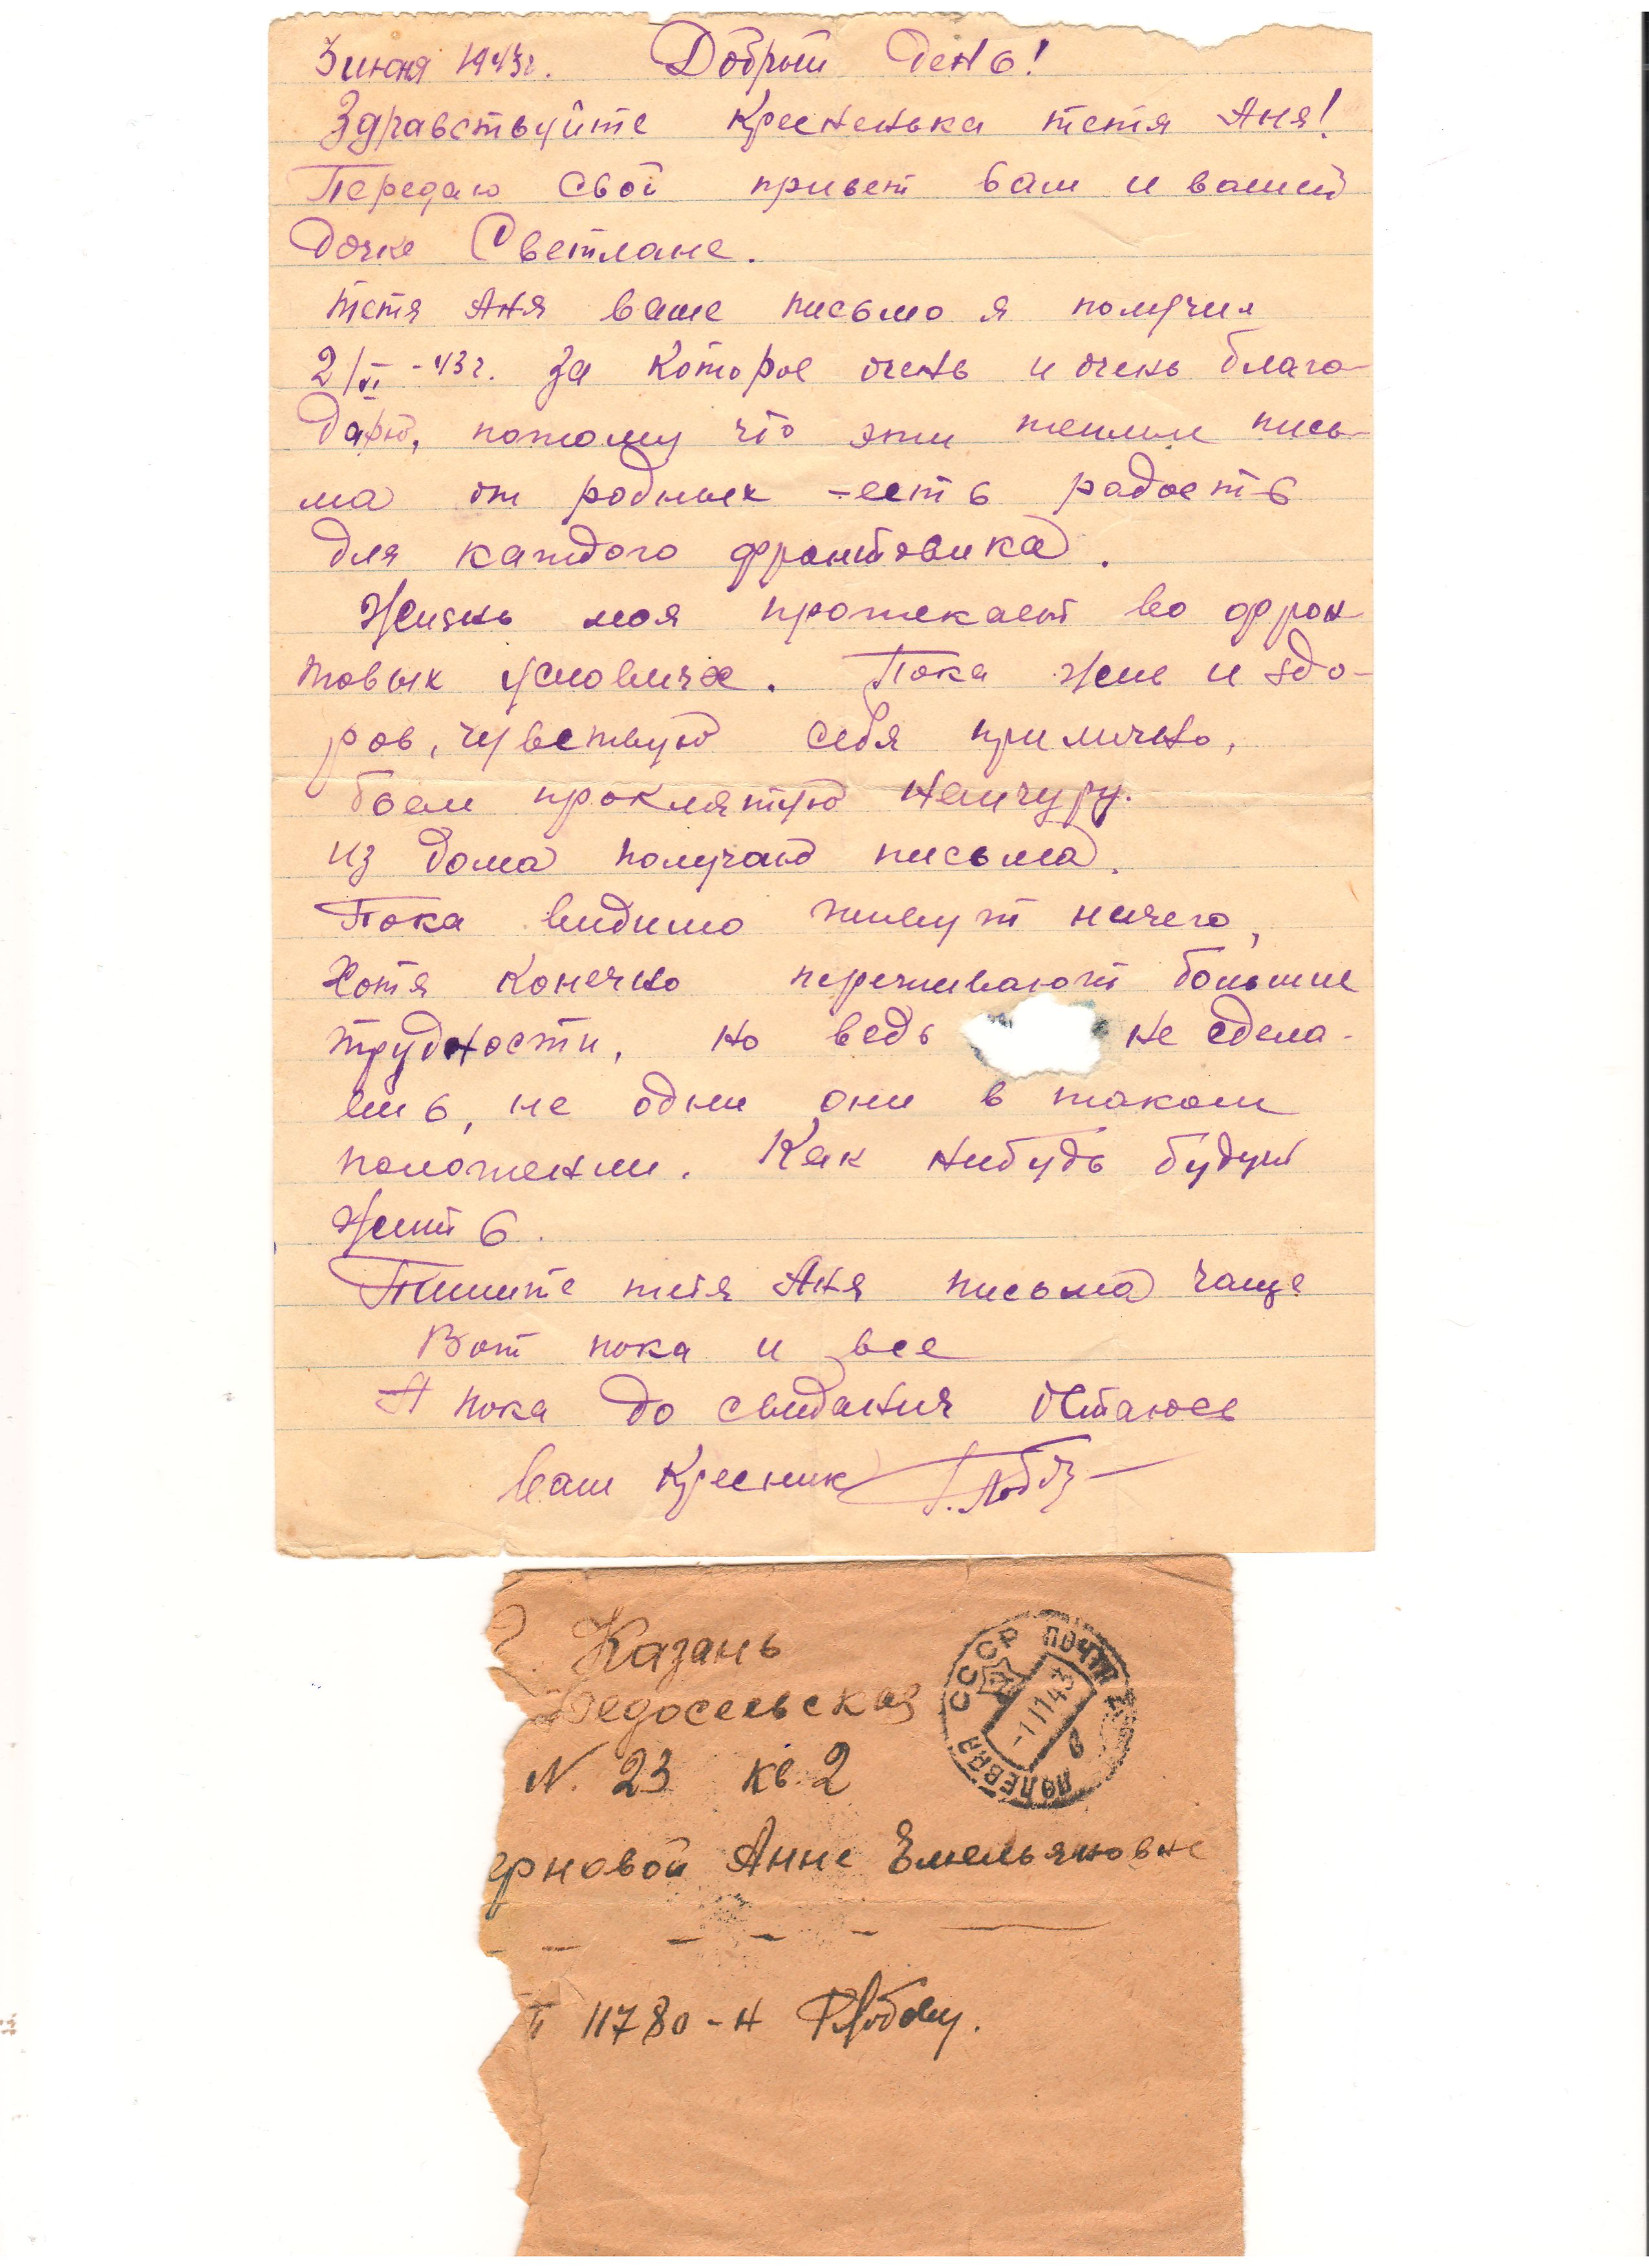 3 июня 1943г. Добрый день!
Здравствуйте Кресненька тетя Аня!
Передаю свой привет вам и вашей
дочке Светлане.
Тетя Аня ваше письмо я получил
2/VI-43г. за которое очень и очень благо-
дарю, потому что эти теплые пись-
ма от родных - есть радость
для каждого фронтовика.
Жизнь моя протекает во фрон
товых условиях. Пока жив и здо-
ров, чувствую себя прилично,
бьем проклятую немчуру.
из дома получаю письма.
Пока видимо живут ничего,
хотя конечно переживают большие
трудности, но ведь не сдела-
ешь, не одни они в таком
положении. Как нибудь будут
жить.
Пишите тетя Аня письма чаще
Вот пока и все
А пока до свидания Остаюсь
ваш Кресник
Казань
Федосеевская
N. 23 кв. 2
ерновой Анне Емельяновне
П 11780-Н
СССР ПОЧТА
ПОЛЕВАЯ